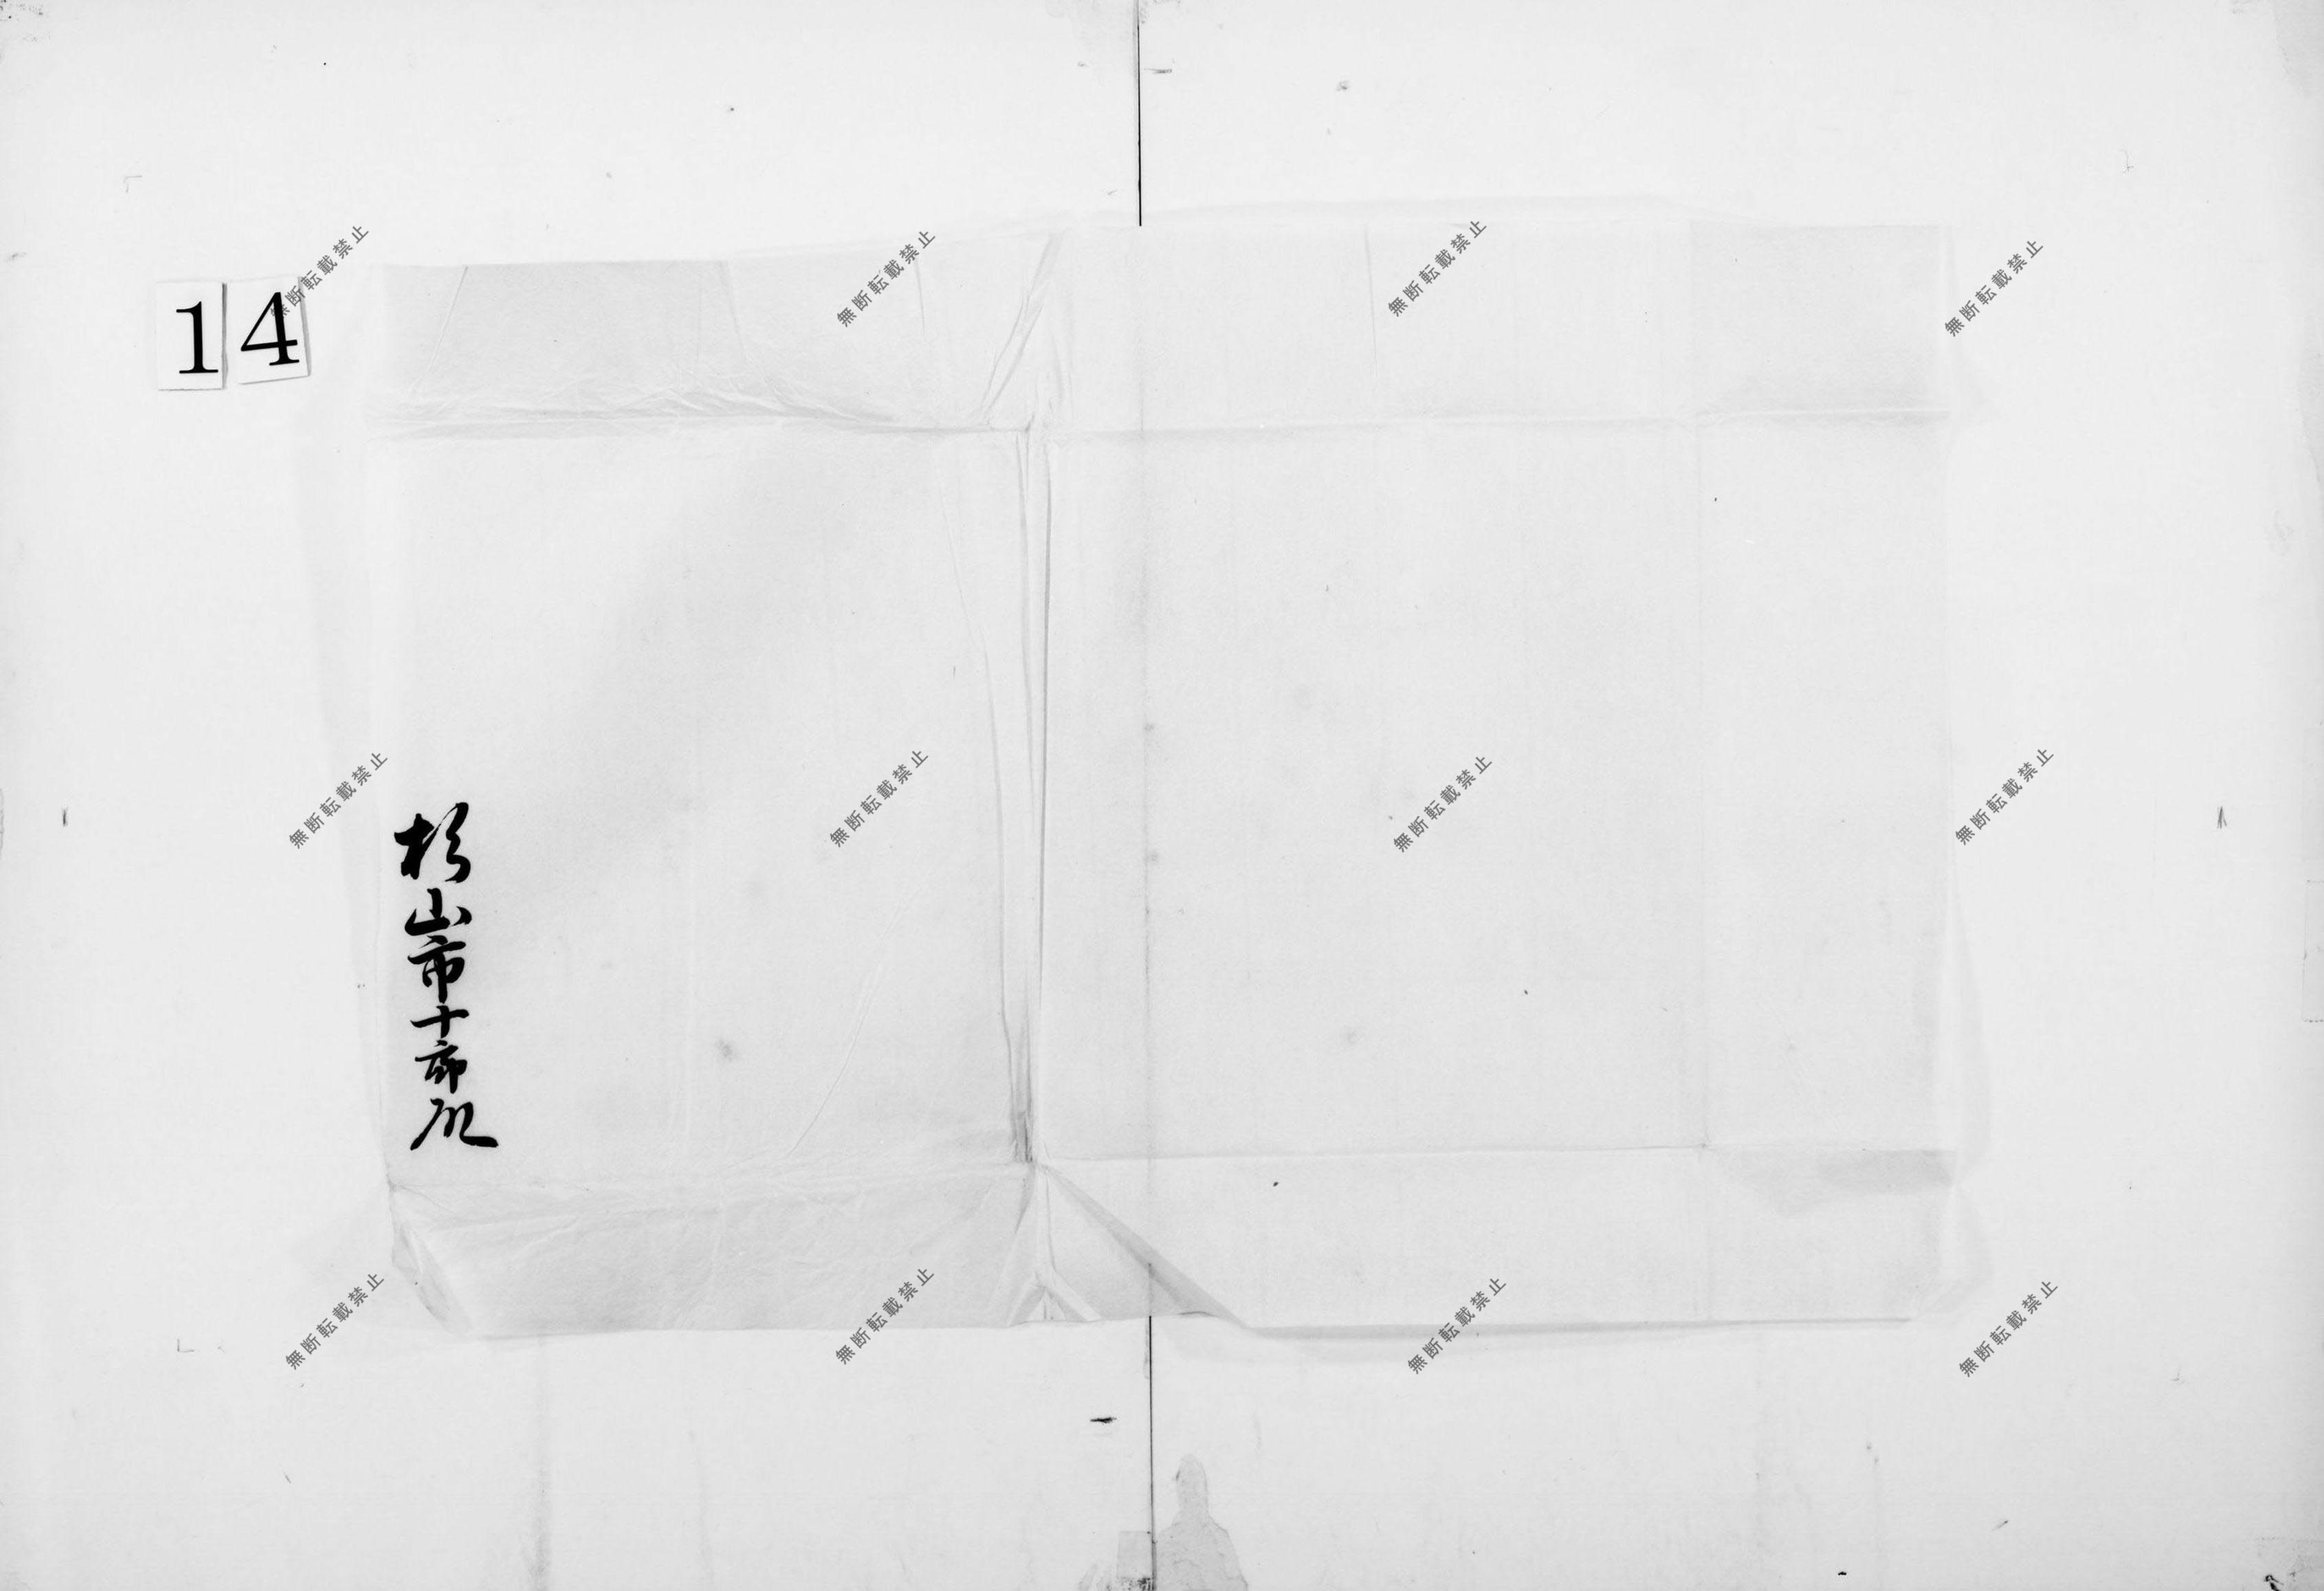 14
杉山市十郎殿
無断転載禁止
無断転載禁止
無断転載禁止
無断転載禁止
無断転載禁止
無断転載禁止
無断転載禁止
無断転載禁止
無断転載禁止
無断転載禁止
無断転載禁止
無断転載禁止